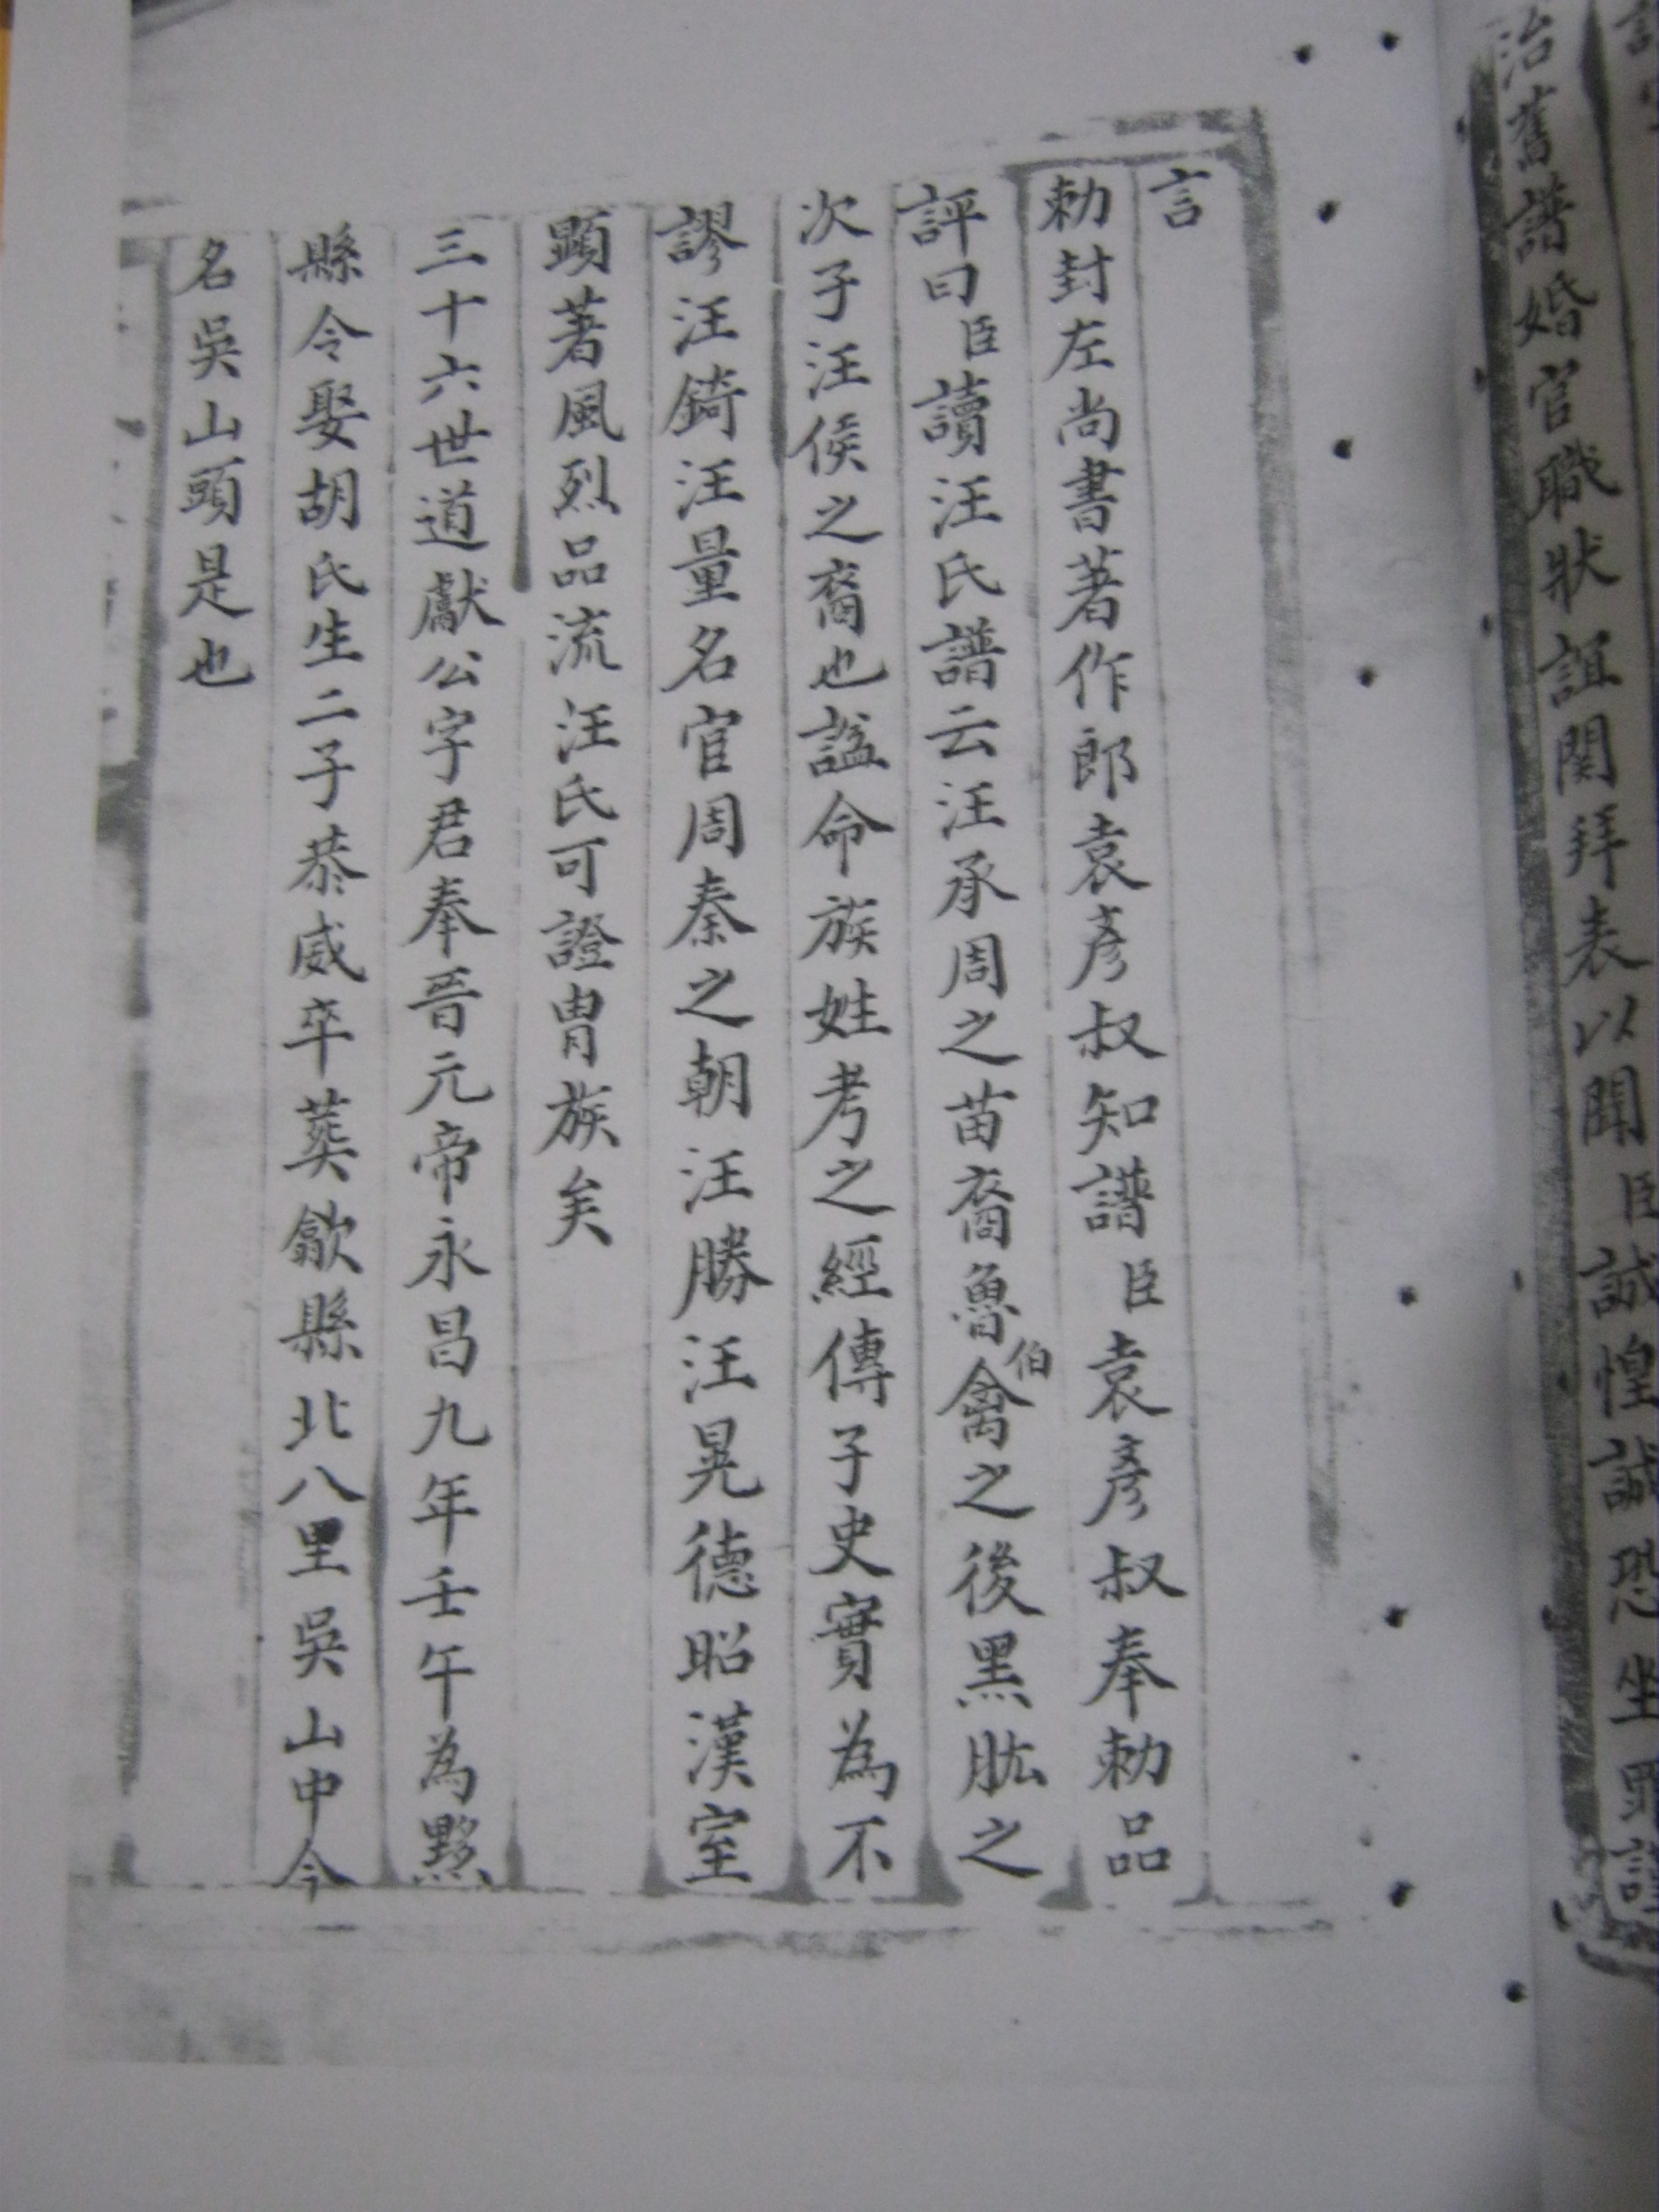 治舊譜婚官職狀誼閣拜表以聞臣誠惶誠恐
言
勅封左尚書著作郎袁彥叔知譜臣袁彥叔奉勅品
評曰臣讀汪氏譜云汪承周之苗裔魯伯禽之後黑肱之
次子汪侯之裔也謚命族姓考之經傳子史實為不
謬汪錡汪量名官周秦之朝汪勝汪晃德昭漢室
顯著風烈品流汪氏可證胄族矣
三十六世道獻公字君奉晉元帝永昌九年壬午為黟
縣令娶胡氏生二子恭威卒葬歙縣北八里吳山中今
名吳山頭是也